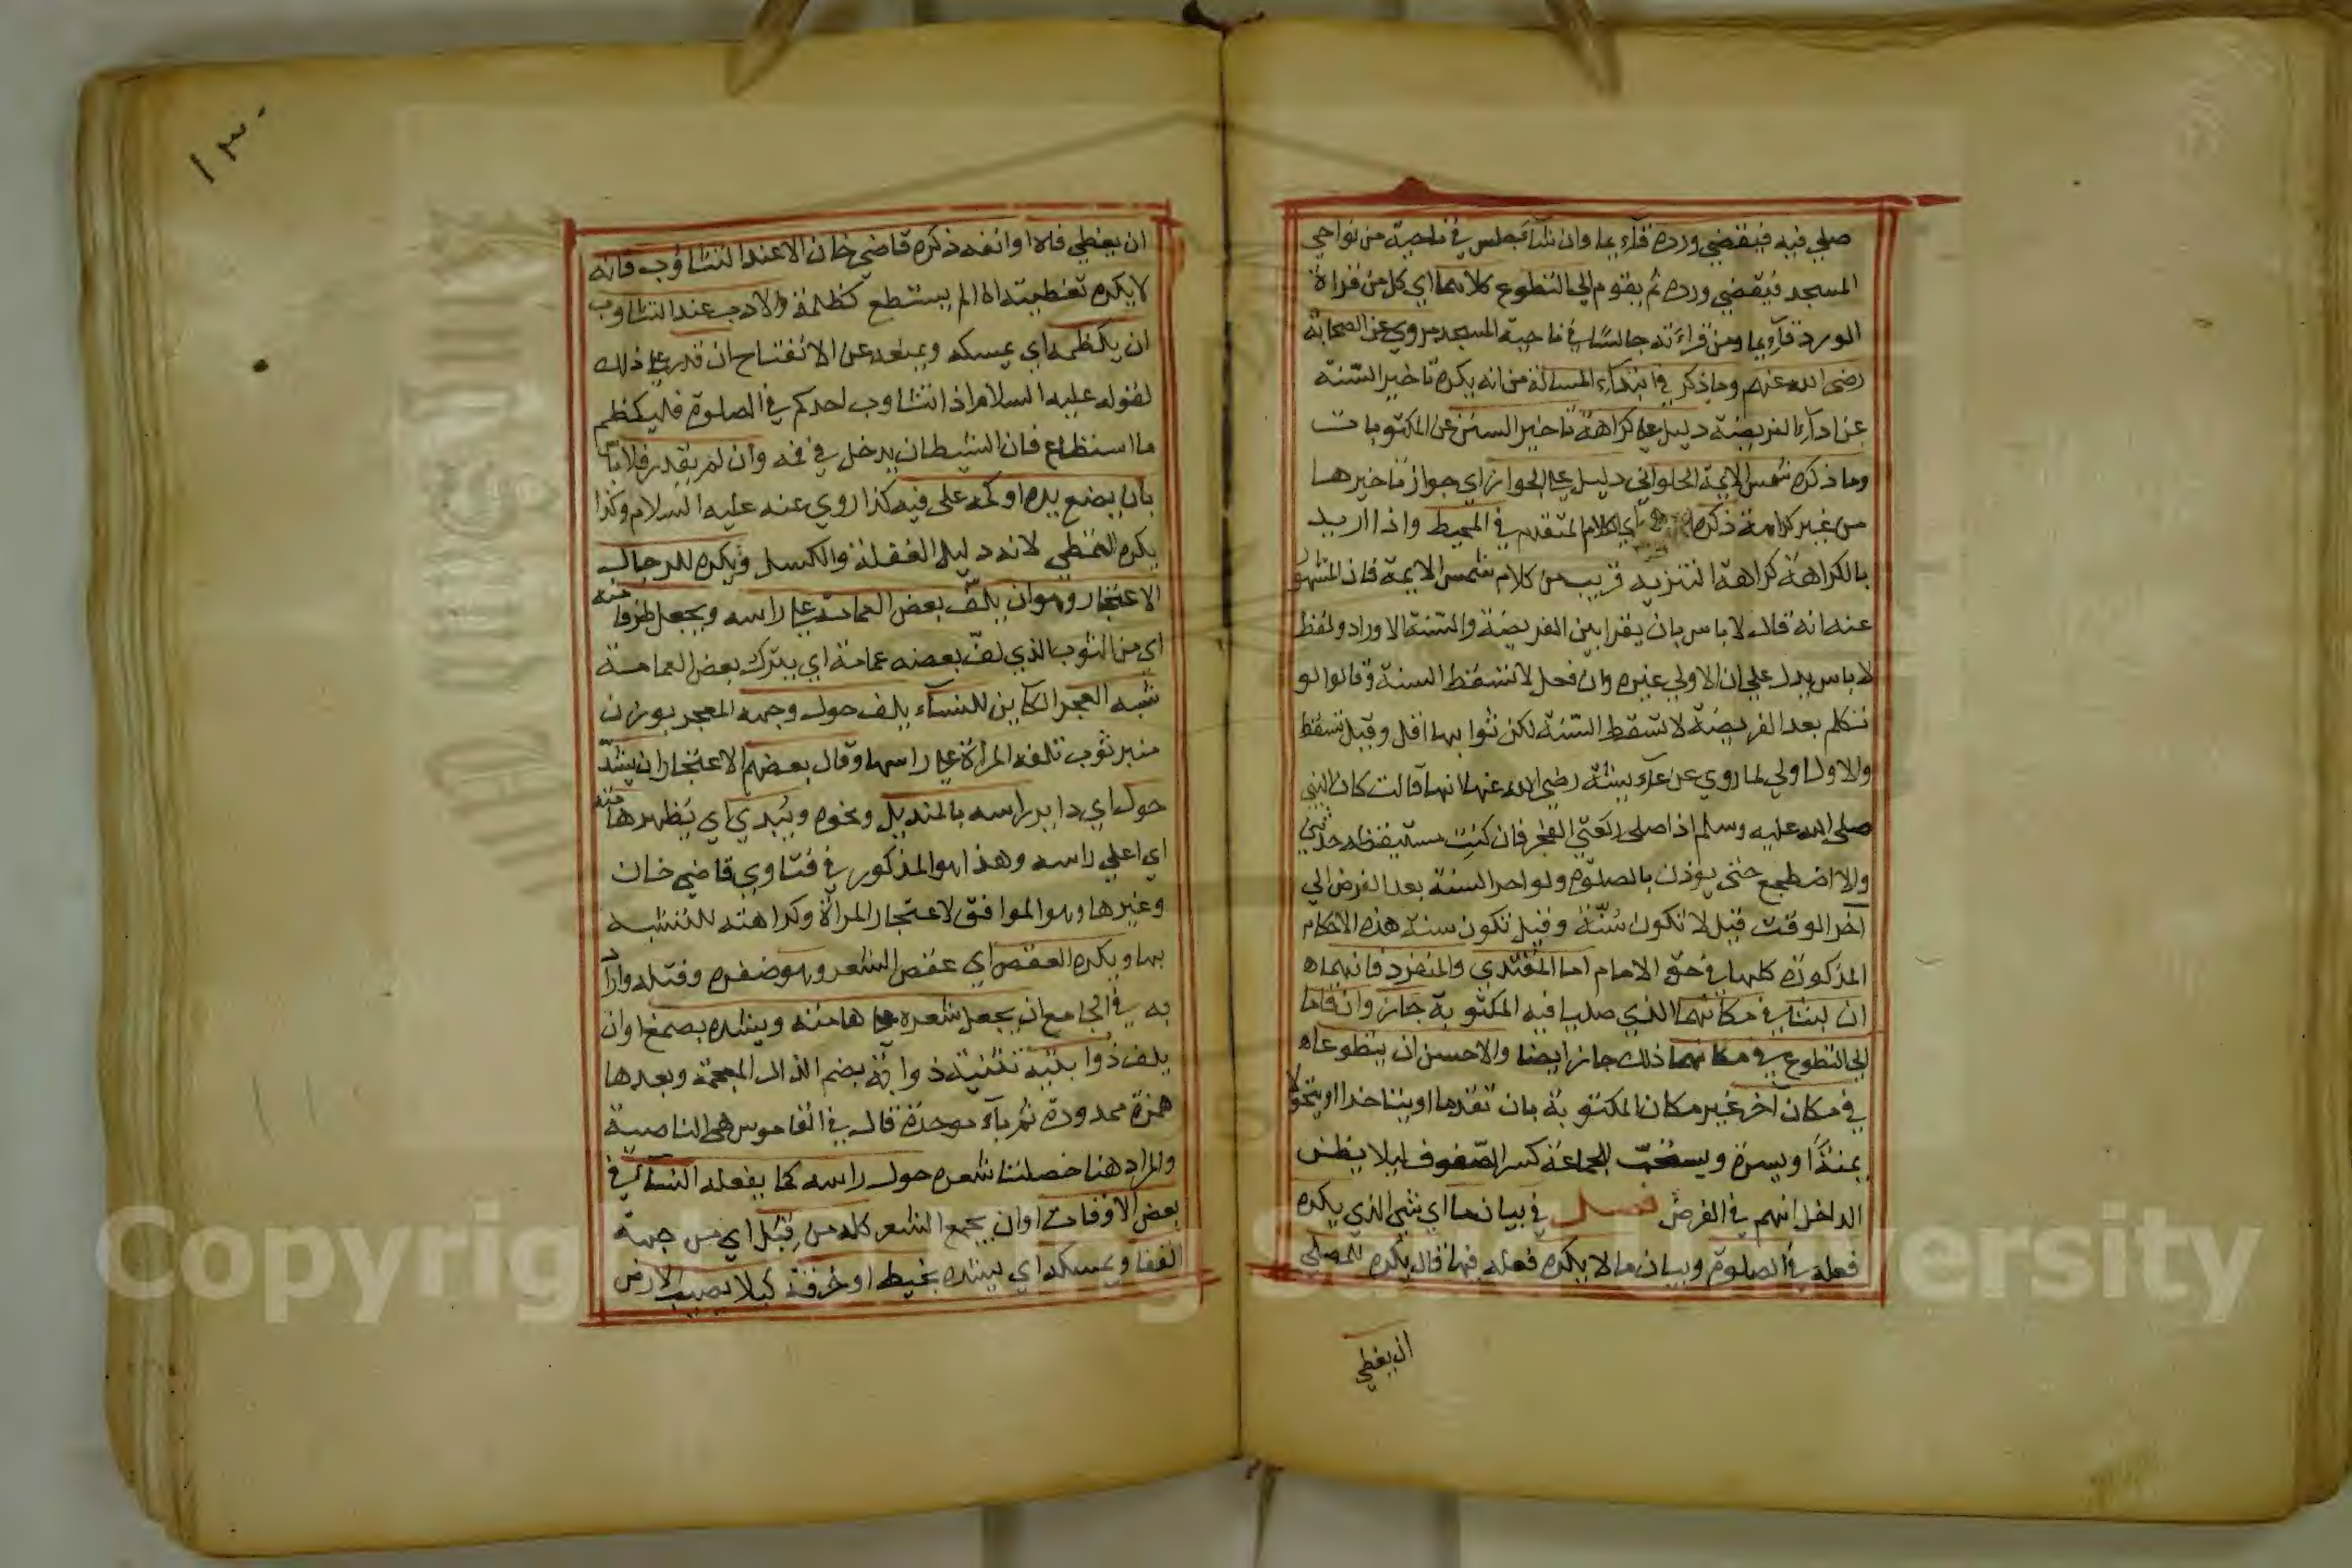 صلي فيه فيقضي ورده قآء يما وان شآء جلس في ناحية من نواحي
المسجد فيقضي ورده ثم يقوم الي التطوع كلاهما اي كل من قراءة
الورد قآءيما ومن قراءته جالسًا في ناحية المسجد مروي عن الصحابة
رضي الله عنهم وما ذكر في ابتدآء المسالة من انه يكره تاخير السّنة
عن ادآء الفريضة دليل علي كراهة تاخير السنن عن المكتوبات
وما ذكره شمس الايمة الحلواني دليل علي الجواز اي جواز تاخيرها
من غير كراهة ذكره اي الكلام المتقدم في المحيط واذا اريد
بالكراهة كراهة التنزيه قريب من كلام شمس الايمة فان المشهور
عنه انه قال لا باس بان يقرا بين الفريضة والسّنة الاوراد ولفظ
لا باس يدل علي ان الاولي غيره وان فعل لا تسقط السنة وقالوا لو
تكلم بعد الفريضة لا تسقط السّنة لكن ثوابها اقل وقيل تسقط
والاول اولي لما روي عن عآءيشة رضي الله عنها انها قالت كان النبي
صلي الله عليه وسلم اذا صلى ركعتي الفجر فان كنت مستيقظه حدثني
والا اضطجع حتى يوذن بالصلوة ولو اخر السنة بعد الفرض الي
اخر الوقت قيل لا تكون سُنّة وقيل تكون سنة هذه الاحكام
المذكورة كلها في حق الامام اما المقتدي والمنفرد فانهما ه
ان لبثا في مكانهما الذي صليا فيه المكتوبة جاز وان قاما
الي التطوع في مكانهما ذلك جاز ايضا والاحسن ان يتطوعا ه
في مكان آخر غير مكان المكتوبة بان تقدما او يتاخرا او يتحولا
يمنةً او يسرة ويستحبّ للجماعة كسر الصّفوف ليلا يظن
الداخل انهم في الفرض فصل في بيان ما اي شي الذي يكره
فعله في الصلوة وبيان ما لا يكره فعله فيها قال يكره للمصلي
ان يغطي
١٣٠
ان يغطي فاه او انفه ذكره قاضي خان الا عند التثاوب فانه
لا يكره تغطيته اذا لم يستطع كظمه والادب عند التثاوب
ان يكظمه اي يمسكه ويمنعه عن الانفتاح ان قدر علي ذلك
لقوله عليه السلام اذا تثاوب احدكم في الصلوة فليكظم
ما استطاع فان الشيطان يدخل في فمه وان لم يقدر فلا باس
بان يضع يده او كمه على فيه كذا روي عنه عليه السلام وكذا
يكره التمطي لانه دليل الغفلة والكسل ويكره للرجال
الاعتجار وهو ان يلفّ بعض العمامة علي راسه ويجعل طرفا منه
اي من الثوب الذي لفّ بعضه عمامة اي يترك بعض العمامة
شبه المعجر الكاين للنسآء يلف حول وجهه المعجر بوزن
منبر ثوب تلفه المراة علي راسها وقال بعضهم الاعتجار ان يشدّ
حول اي داير راسه بالمنديل ونحوه ويُبدي اي يُظهر هامته
اي اعلي راسه وهذا هو المذكور في فتاوي قاضي خان
وغيرها وهو الموافق لاعتجار المراة وكراهته للتشبه
بها ويكره العقص اي عقص الشعر وهو ضفره وفتله واراد
به في الجامع ان يجعل شعره علي هامته ويشده بصمغ او ان
يلف ذُوابتيه تثنية ذوابة بضم الذال المعجمة وبعدها
همزة ممدودة ثم بآء موحدة قال في القاموس هي الناصية
والمراد هنا خصلتا شعره حول راسه كما يفعله النسآء في
بعض الاوقات او ان يجمع الشعر كله من قِبَل اي من جهة
القفا ويمسكه اي يشده بخيط او خرقة كيلا يصيب الارض
Copyright © King Saud University